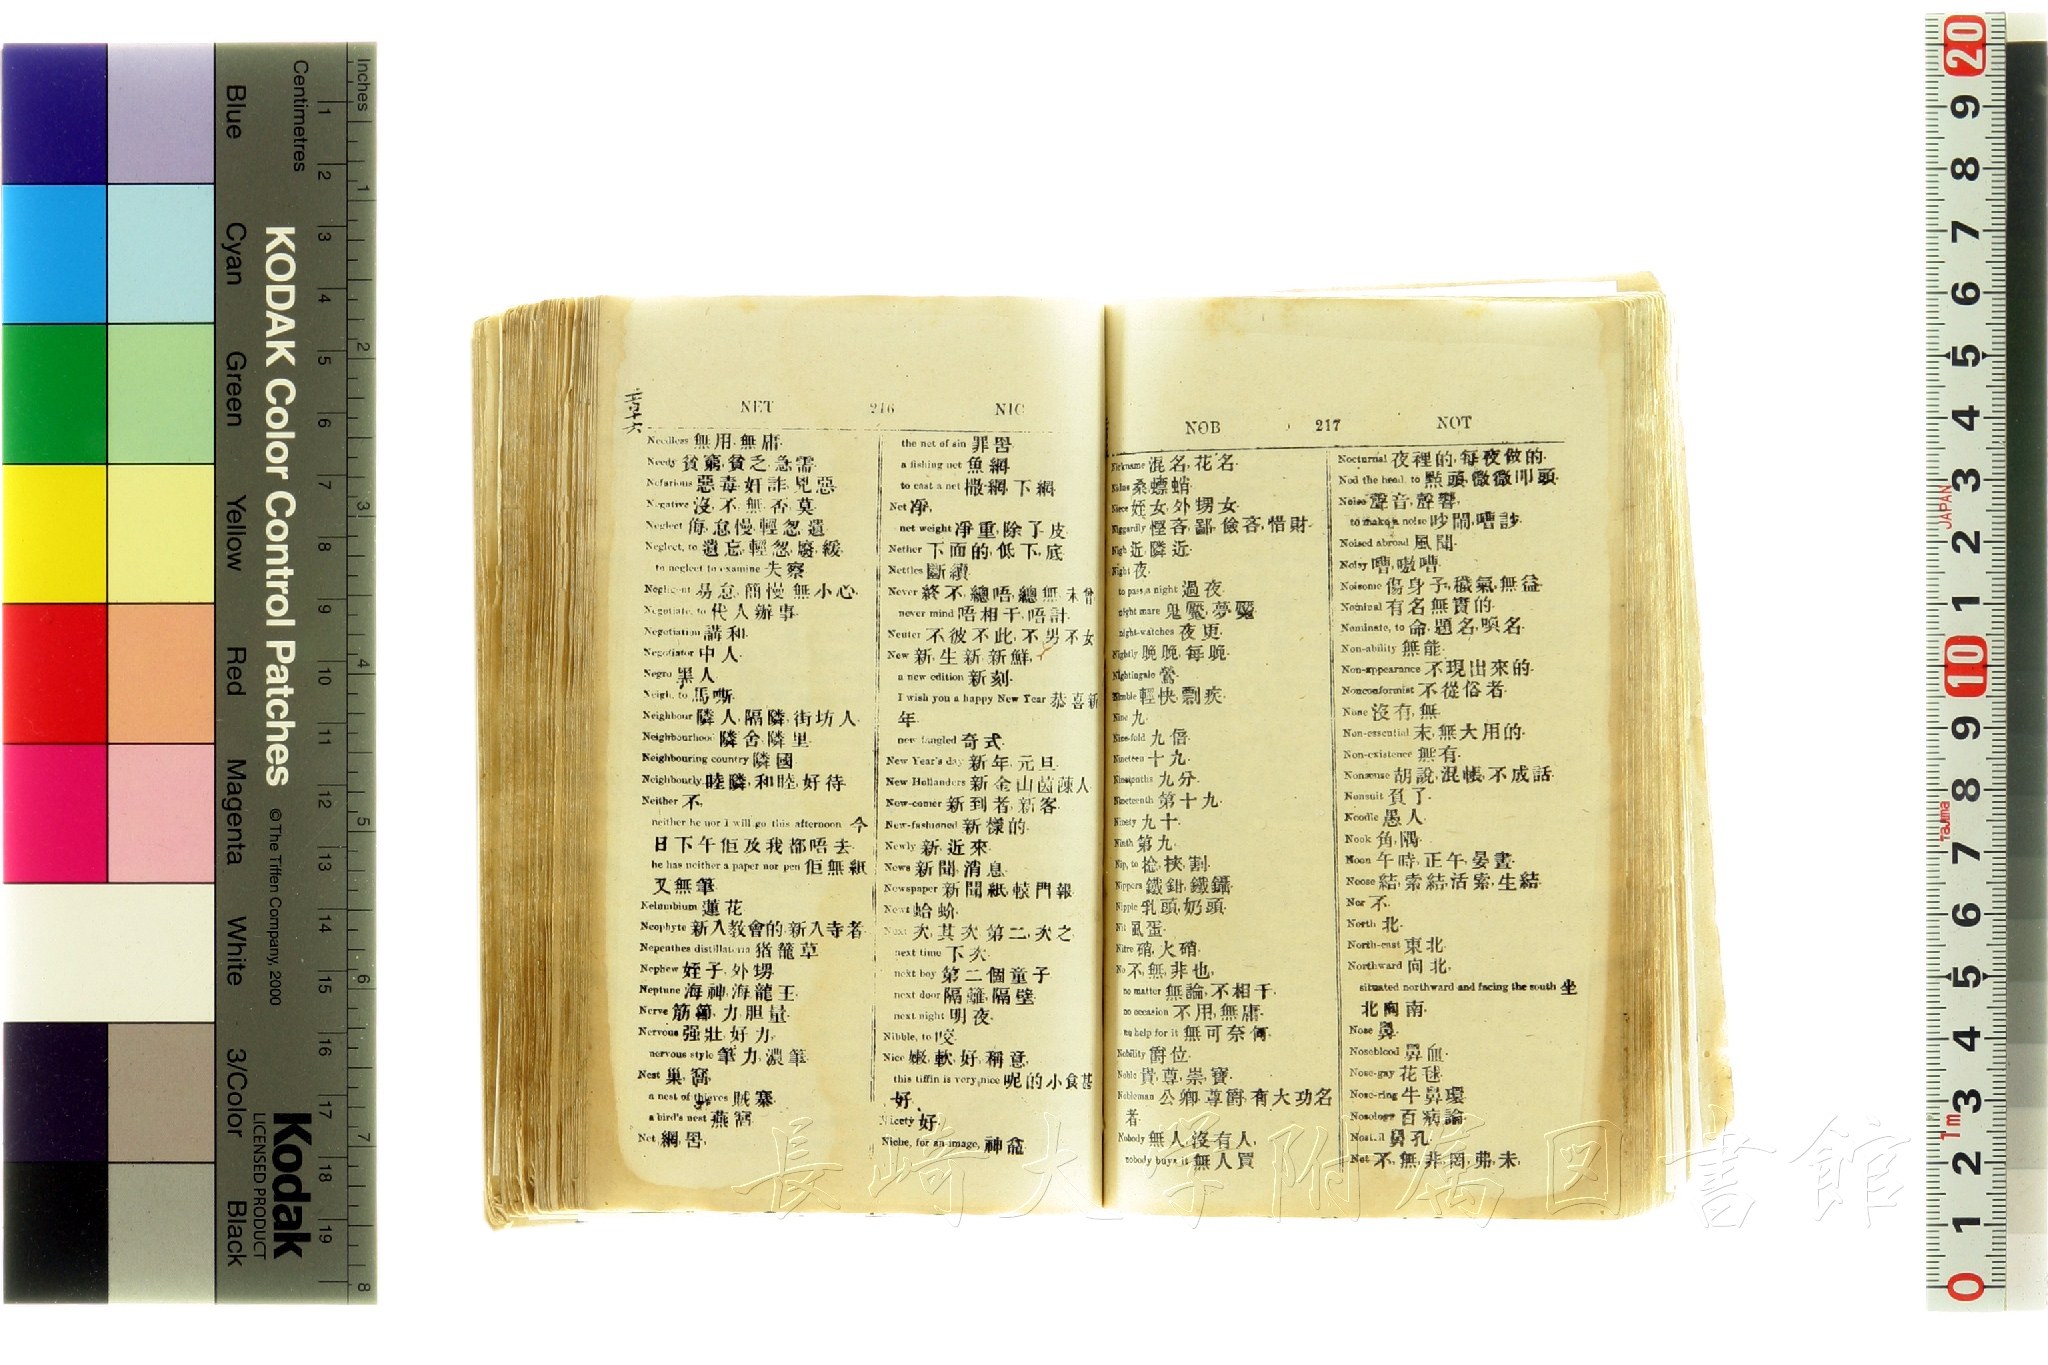 Inches
Centimetres
Blue
Cyan
Green
Yellow
Red
Magenta
White
3/Color
Black
KODAK Color Control Patches
© The Tiffen Company, 2000
Kodak
LICENSED PRODUCT
NET 216 NIC
Needless 無用,無庸.
Needy 貧窮,貧乏,急需.
Nefarious 惡毒,奸詐,兇惡.
Negative 沒,不,無,否,莫.
Neglect 侮,怠慢,輕忽,遺.
Neglect, to 遺忘,輕忽,廢,緩.
to neglect to examine 失察.
Negligent 易怠,簡慢,無小心.
Negotiate, to 代人辦事.
Negotiation 講和.
Negotiator 中人.
Negro 黑人.
Neigh, to 馬嘶.
Neighbour 隣人,隔隣,街坊人.
Neighbourhood 隣舍,隣里.
Neighbouring country 隣國.
Neighbourly 睦隣,和睦,好待.
Neither 不,
neither he nor I will go this afternoon 今
日下午佢及我都唔去.
he has neither a paper nor pen 佢無紙
又無筆.
Nelumbium 蓮花.
Neophyte 新入教會的,新入寺者.
Nepenthes distillatoria 猪籠草.
Nephew 姪子,外甥.
Neptune 海神,海龍王.
Nerve 筋,力,胆量.
Nervous 强壯,好力.
nervous style 筆力,濃筆.
Nest 巢,窩.
a nest of thieves 賊寨.
a bird's nest 燕窩.
Net 網,罟.
the net of sin 罪罟.
a fishing net 魚網.
to cast a net 撒網,下網.
Net 凈,
net weight 凈重,除了皮.
Nether 下面的,低下,底.
Nettles 斷續.
Never 終不,總唔,總無,未曾
never mind 唔相干,唔計.
Neuter 不彼不此,不男不女
New 新,生新,新鮮,
a new edition 新刻.
I wish you a happy New Year 恭喜新
年.
new fangled 奇式.
New Year's day 新年,元旦.
New Hollanders 新金山
New-comer 新到者,新客.
New-fashioned 新樣的.
Newly 新,近來.
News 新聞,消息.
Newspaper 新聞紙,轅門報.
Newt 蛤蚧.
Next 次,其次,第二,次之.
next time 下次.
next boy 第二個童子.
next door 隔籬,隔壁.
next night 明夜.
Nibble, to 咬.
Nice 嫩,軟,好,稱意.
this tiffin is very nice 呢的小食甚
好.
Nicety 好.
Niche, for an image, 神龕.
NOB 217 NOT
Nickname 混名,花名.
Nidus 桑螵蛸.
Niece 姪女,外甥女.
Niggardly 慳吝,鄙,儉吝,惜財.
Nigh 近,隣近.
Night 夜.
to pass a night 過夜.
night mare 鬼魘,夢魘.
night-watches 夜更.
Nightly 晚晚,每晚.
Nightingale 鶯.
Nimble 輕快,剽疾.
Nine 九.
Nine-fold 九倍.
Nineteen 十九.
Nineteenth 第十九.
Ninety 九十.
Ninth 第九.
Nip, to 捻,挾,割.
Nippers 鐵鉗,鐵鑷.
Nipple 乳頭,奶頭.
Nit 虱蛋.
Nitre 硝,火硝.
No 不,無,非也,
no matter 無論,不相干.
no occasion 不用,無庸.
no help for it 無可奈何.
Nobility 爵位.
Noble 貴,尊,崇,寶.
Nobleman 公卿,尊爵,有大功名
者.
Nobody 無人,沒有人,
nobody buys it 無人買
Nocturnal 夜裡的,每夜做的.
Nod the head, to 點頭,微微叩頭.
Noise 聲音,聲響,
to make a noise 吵鬧,嘈
Noised abroad 風聞.
Noisy 嘈,嗷嘈.
Noisome 傷身子,穢氣,無益.
Nominal 有名無實的.
Nominate, to 命,題名,喚名.
Non-ability 無能.
Non-appearance 不現出來的.
Nonconformist 不從俗者.
None 沒有,無.
Non-essential 末,無大用的.
Non-existence 無有.
Nonsense 胡說,混帳,不成話.
Nonsuit 負了.
Noodle 愚人.
Nook 角,隅.
Noon 午時,正午,晏晝.
Noose 結,索結,活索,生結.
Nor 不.
North 北.
North-east 東北.
Northward 向北,
situated northward and facing the south 坐
北向南.
Nose 鼻.
Noseblood 鼻血.
Nose-gay 花毬.
Nose-ring 牛鼻環.
Nosology 百病論.
Nostril 鼻孔.
Not 不,無,非,罔,弗,未,
長崎大学附属図書館
JAPAN
Tajima
1m